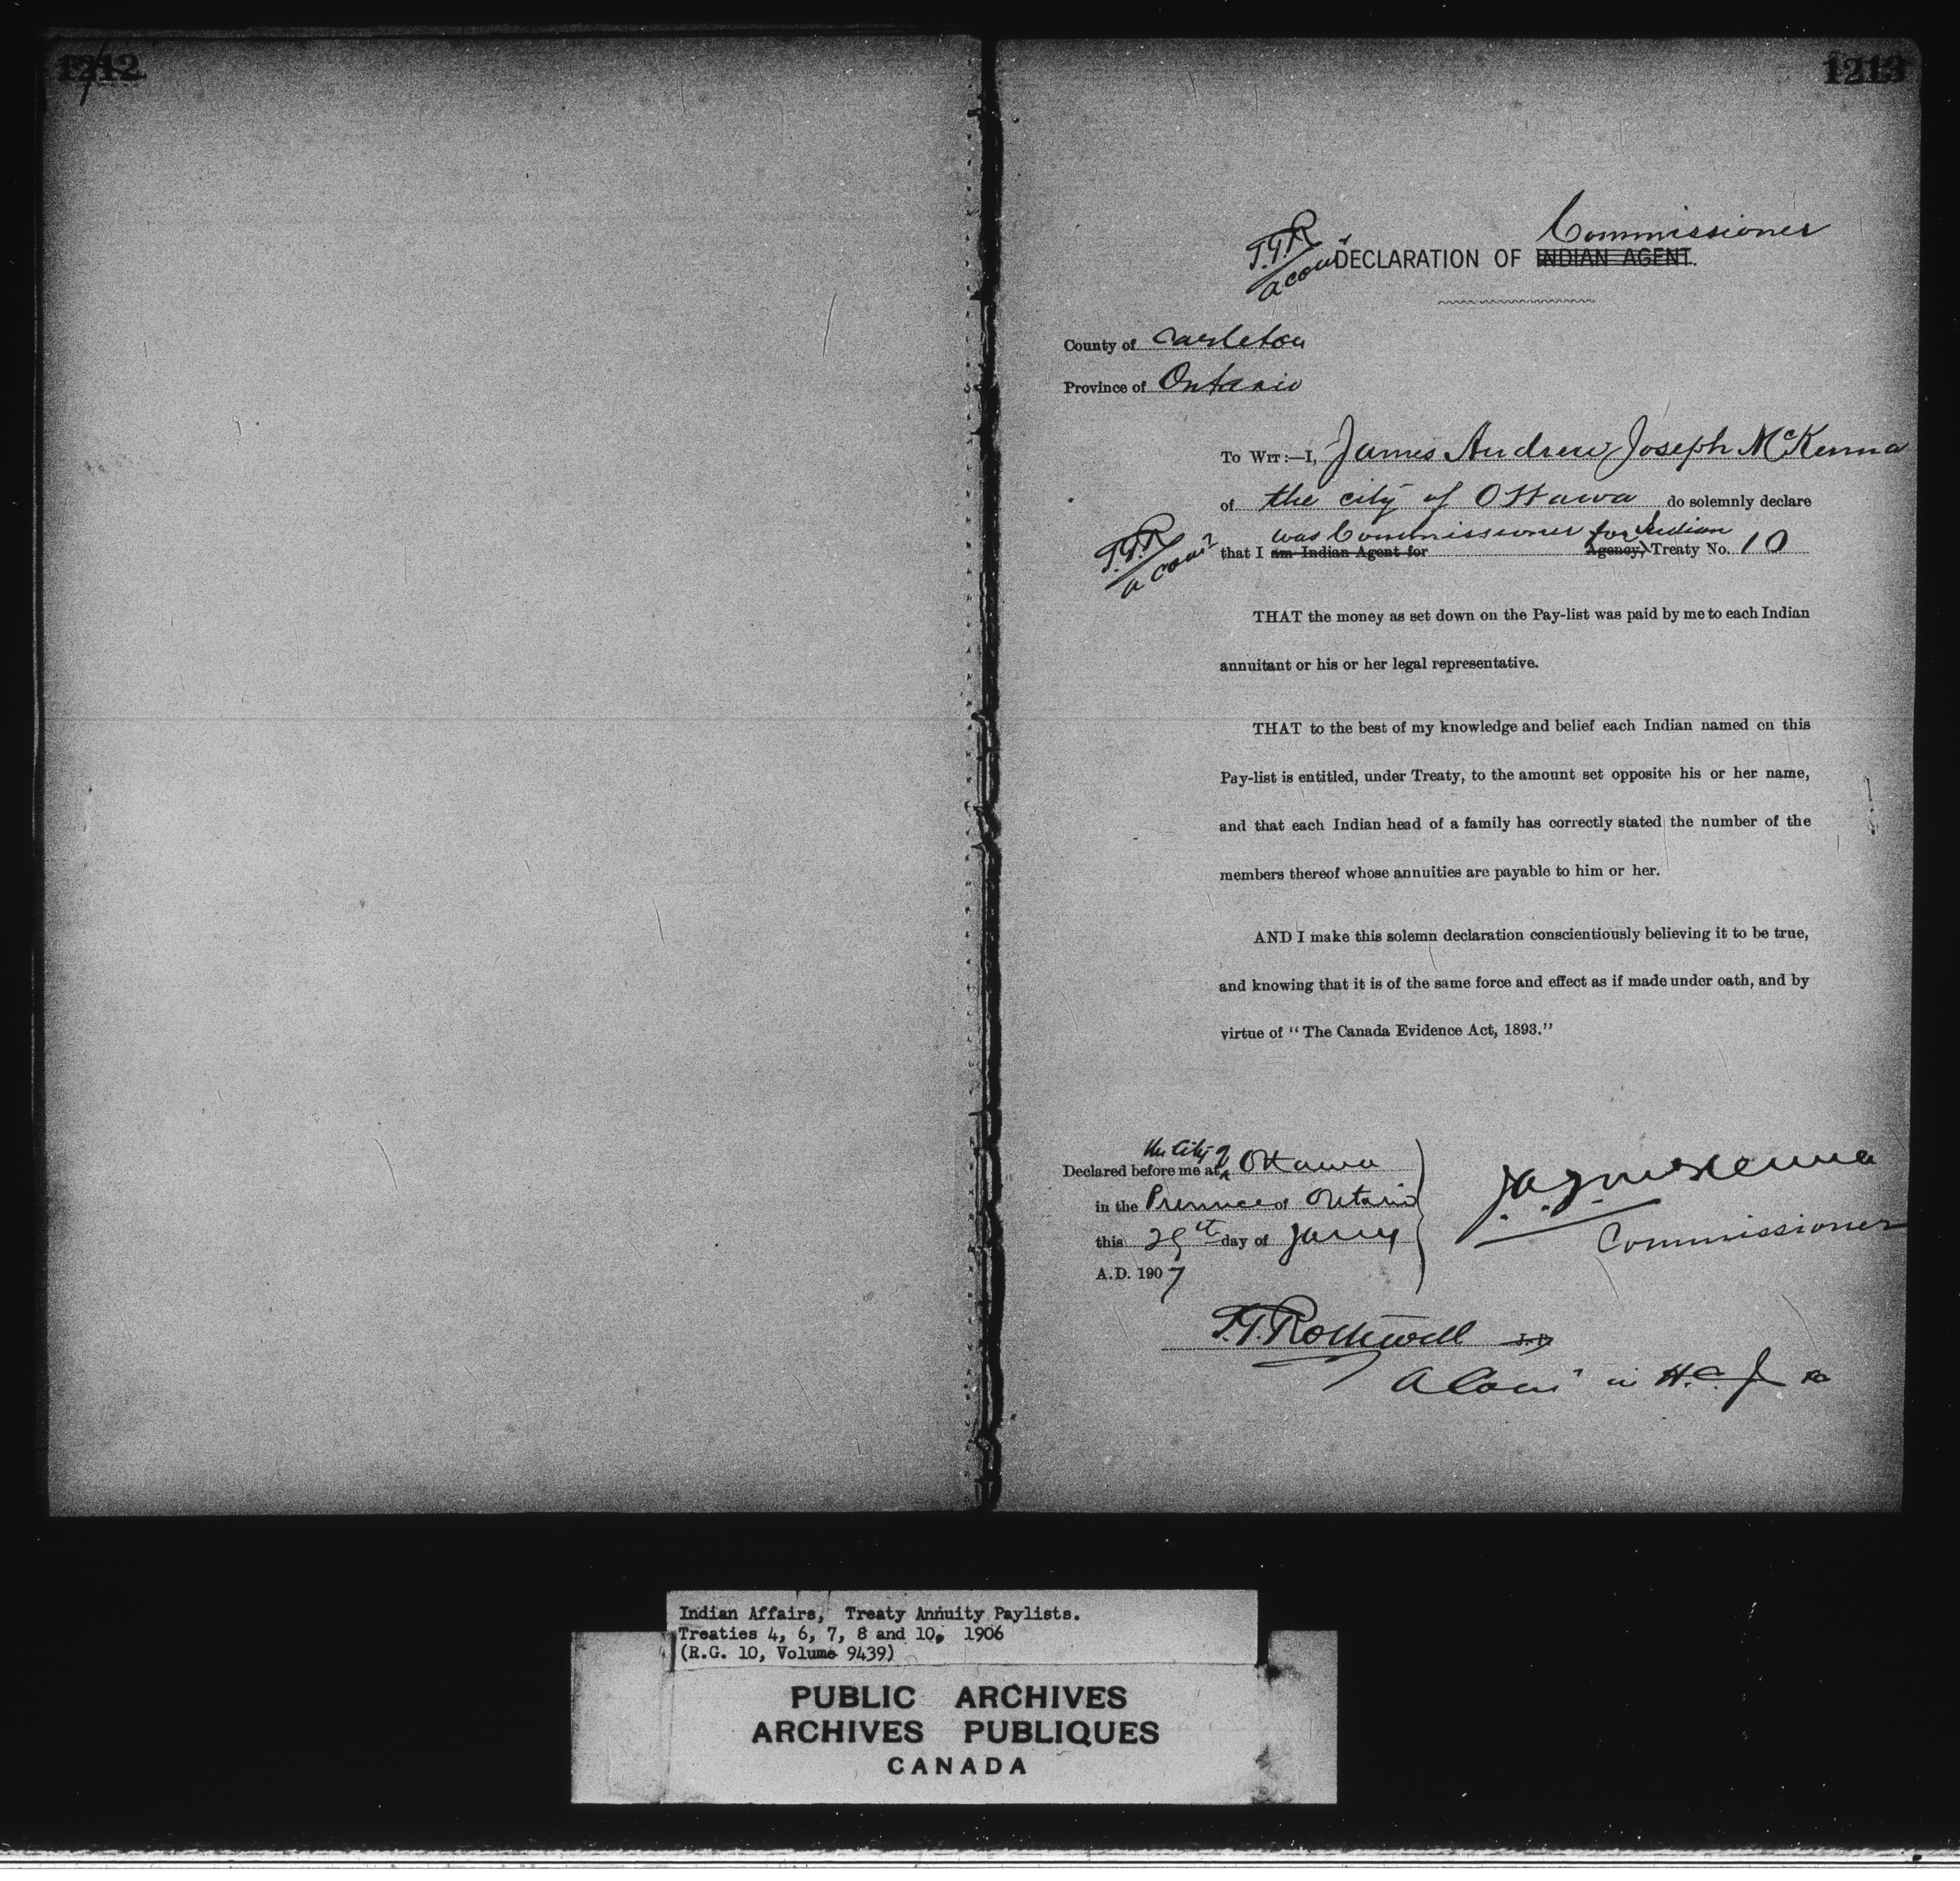 1242
1213
Commissioner
T.T.R
a com'r
DECLARATION OF INDIAN AGENT.
County of Carleton
Province of Ontario
To Wit:—I, James Andrew Joseph McKenna
of the city of Ottawa do solemnly declare
was Commissioner for Indian
T.T.R
a com'r
that I am Indian Agent for Agency, Treaty No. 10
THAT the money as set down on the Pay-list was paid by me to each Indian
annuitant or his or her legal representative.
THAT to the best of my knowledge and belief each Indian named on this
Pay-list is entitled, under Treaty, to the amount set opposite his or her name,
and that each Indian head of a family has correctly stated the number of the
members thereof whose annuities are payable to him or her.
AND I make this solemn declaration conscientiously believing it to be true,
and knowing that it is of the same force and effect as if made under oath, and by
virtue of "The Canada Evidence Act, 1893."
the City of
Declared before me at Ottawa
in the Province of Ontario
this 29th day of Jany
A.D. 1907
J.A.J. McKenna
Commissioner
T.T. Rothwell J.P.
A Com' in H.C.J.
Indian Affairs, Treaty Annuity Paylists.
Treaties 4, 6, 7, 8 and 10, 1906
(R.G. 10, Volume 9439)
PUBLIC ARCHIVES
ARCHIVES PUBLIQUES
CANADA